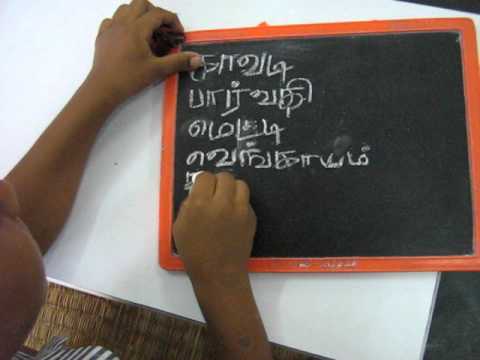 காவடி
பார்வதி
மெட்டி
வெங்காயம்